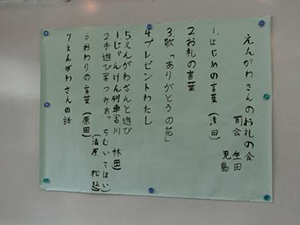 えんがわさんのお礼の会
司会 生田
児島
1.はじめの言葉(濱田)
2お礼の言葉
3歌「ありがとうの花」
4プレゼントわたし
5えんがわさんと遊び
1じゃんけん列車 吉川 林田
2手遊び 茶つみ あっちむいてほい
(清原 松
6おわりの言葉(原田)
7えんがわさんの話